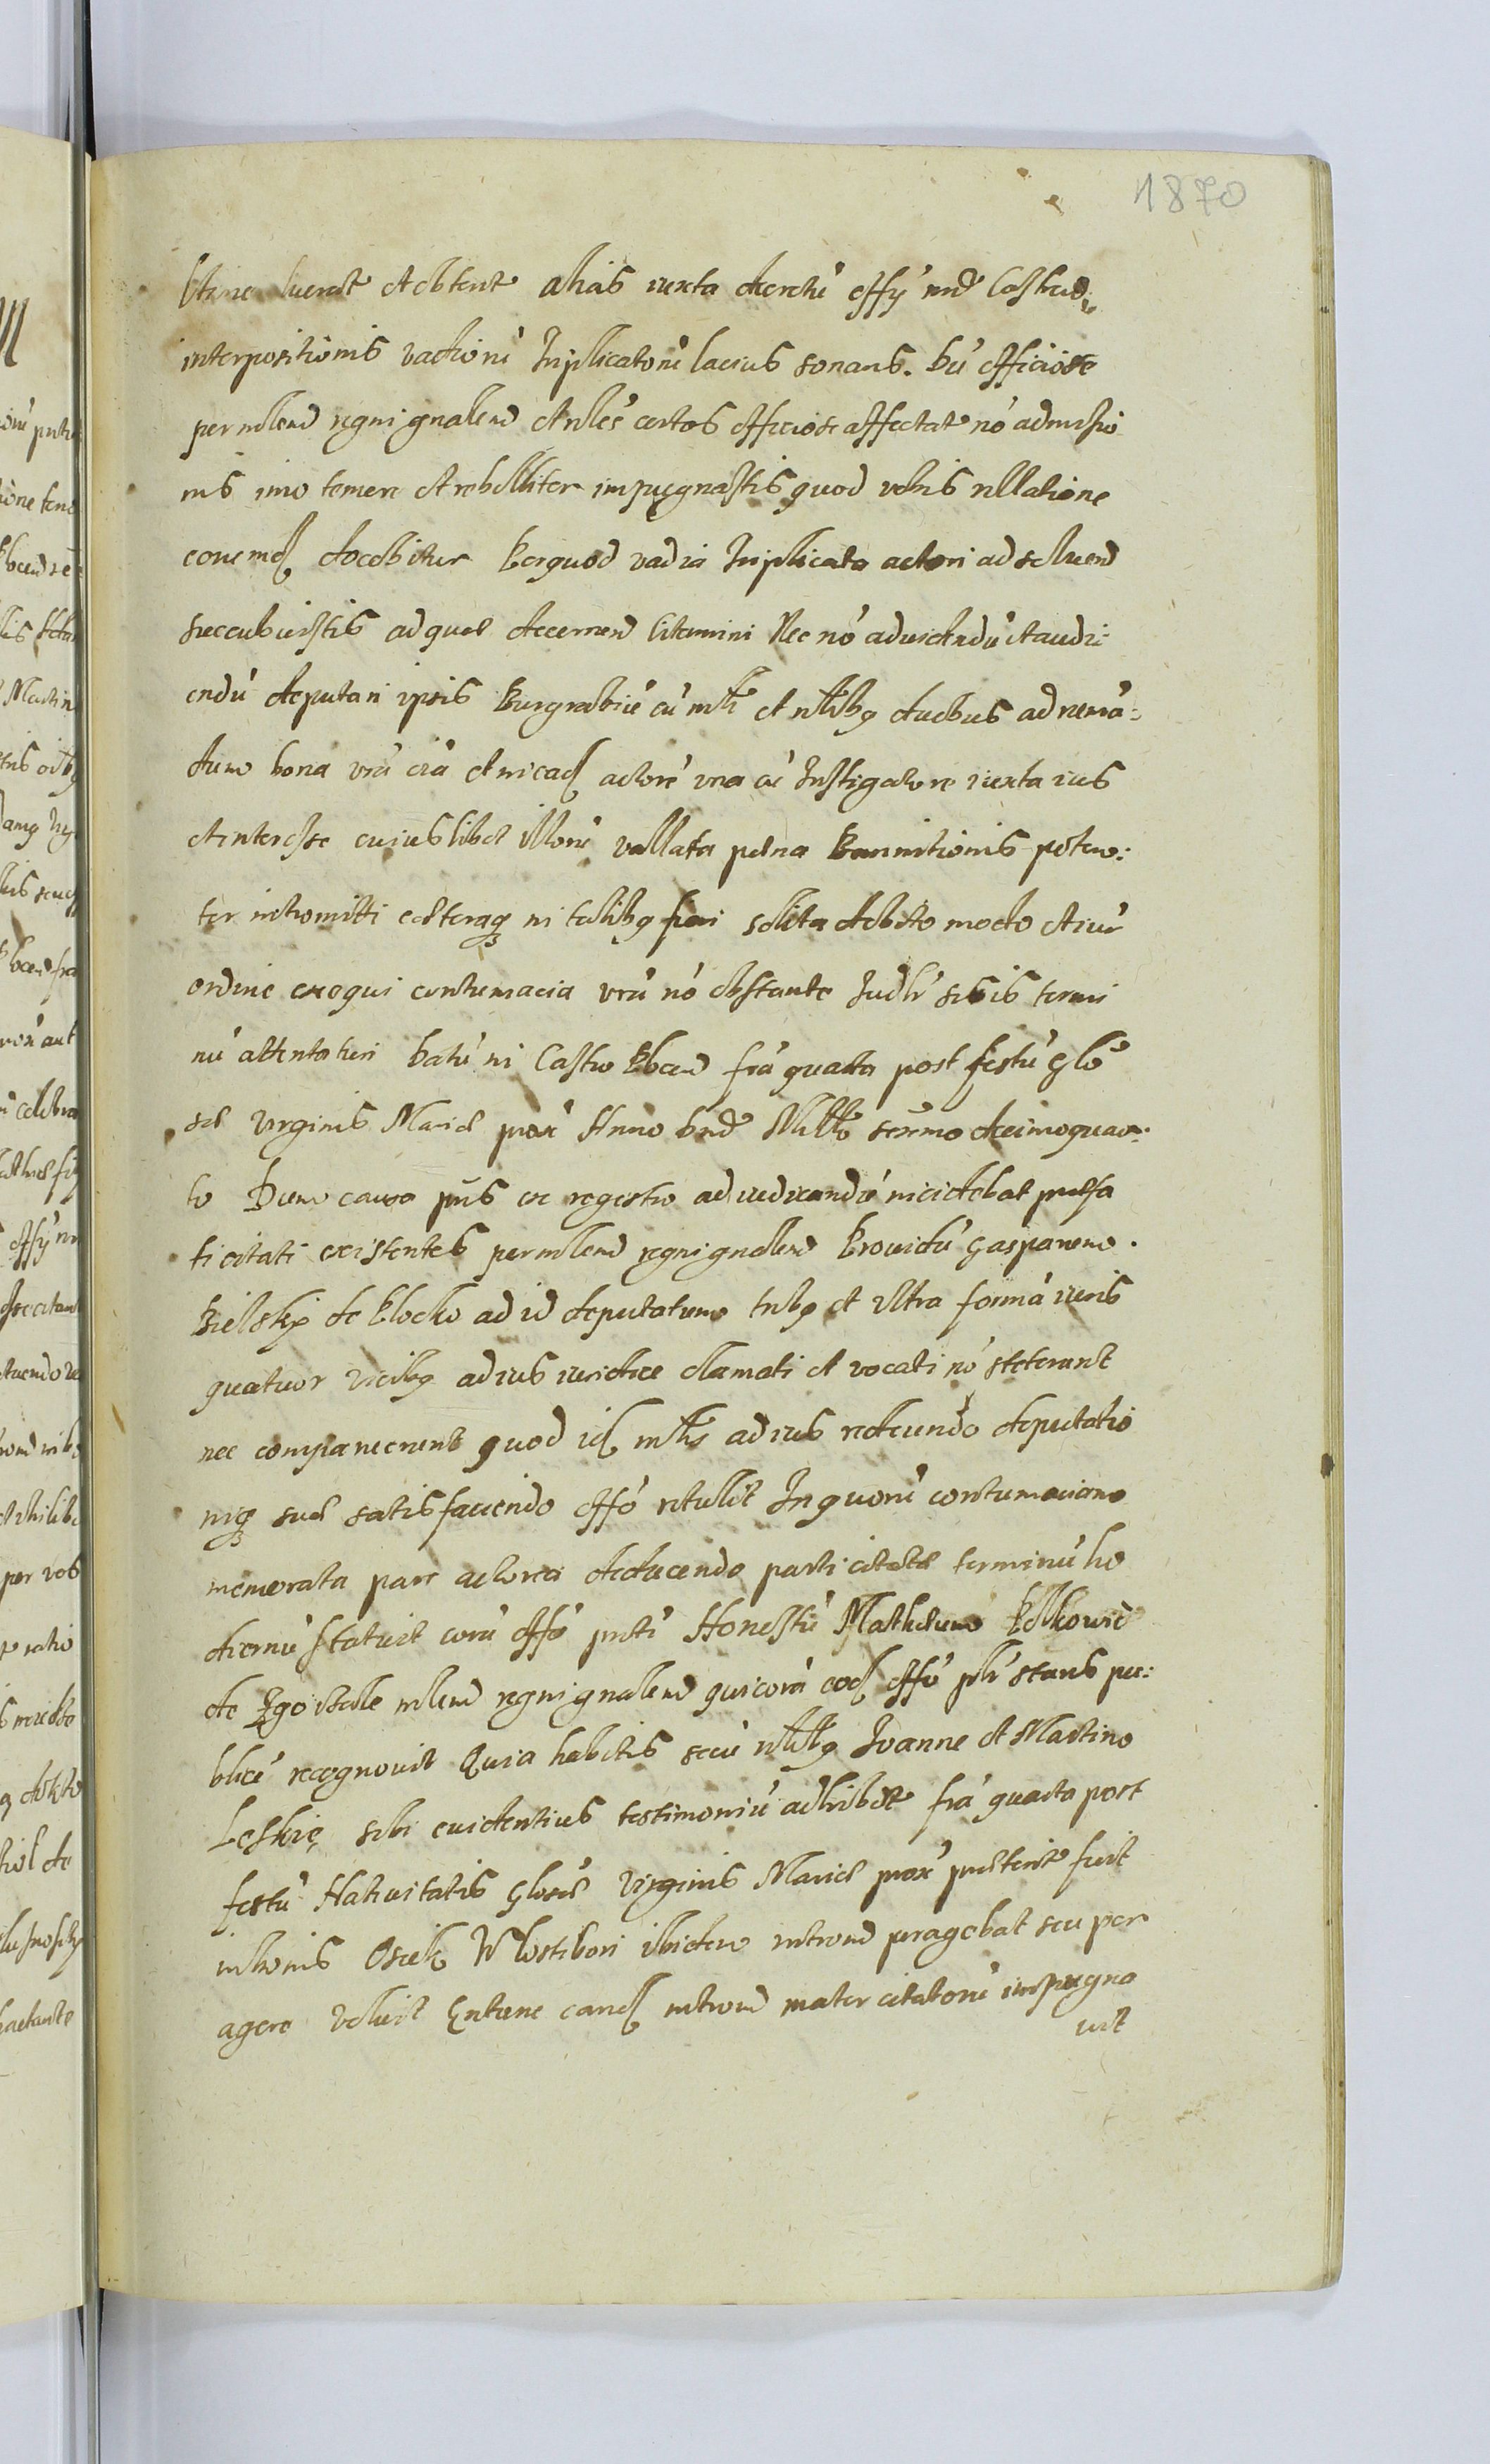 1870
luerat et obtent alias iuxta decretũ offÿ nrĩ Castren
interpositionis vadiorũ Triplicatorũ lacius sonans. bũ officiose
per mlem regni gnalem et nles certos officiose affectat nõ admisi
nis imo temere et rebelliter impugnastis quod vobis rllatione
eorumd docebitur Perquod vadia Triplicata actori ad soluend
succubuistis ad quae decernend Citamini Nec nõ ad videndũ et audi
endũ deputari ipsis Burgrabiũ cũ mlri et nlibq duobus ad rema
dum bona vrã oiã et in ead actorẽ vna cũ Instigatore iuxta ius
et interesse cuiuslibet illorũ vallata paena Bannitionis poten:
ter intromitti caeteraq in talibq fieri solita debito modo et iur
ordine exequi contumacia vrã nõ obstante Iudlr sitis termi
nũ attentaturi Datũ in Castro Ploceñ frã quarta post festũ Glo
sae Virginis Mariae prox Anno Dni Millo sexmo decimoquar
to Dum causa pns ex regestro ad iudicandũ incidebat pulsa
ti citati existentes per mlem regni gnalem Prouidũ Gasparem
Bielsky de Plocko ad id deputatum tribq et vltra formã iuris
quatuor vicibq ad ius iuridice clamati et vocati nõ steterunt
nec comparuerunt quod id mlris ad ius redeundo deputatio
niq suae satisfaciendo offõ retulit In quorũ contumaciam
memorata pars actorea deducendo parti citatae terminũ ho
diernũ statuit corã offõ pnti Honestũ Mathaeum Polkowic
de Zgo mlem regni gnalem qui corã eod offõ plr stans pu:
blice recognouit Quia habitis secũ nlibq Ioanne et Martino
Leskie sibi euidentius testimoniũ adhibit frã quarta post
festũ Natiuitatis Glosae Virginis Mariae prox praeterit fuit
in bonis Osiek Wlostibori ibidem introm peragebat seu per
agere voluit Extunc eand introm mater citatorũ impugna
uit